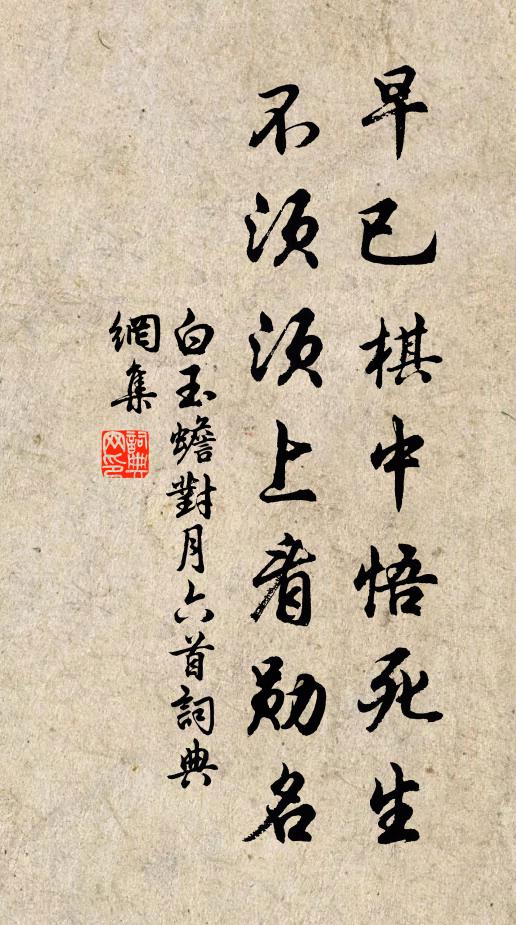 早已棋中悟死生
不须须上看勋名
白玉蟾對月六首詞典
網集
詞典網印